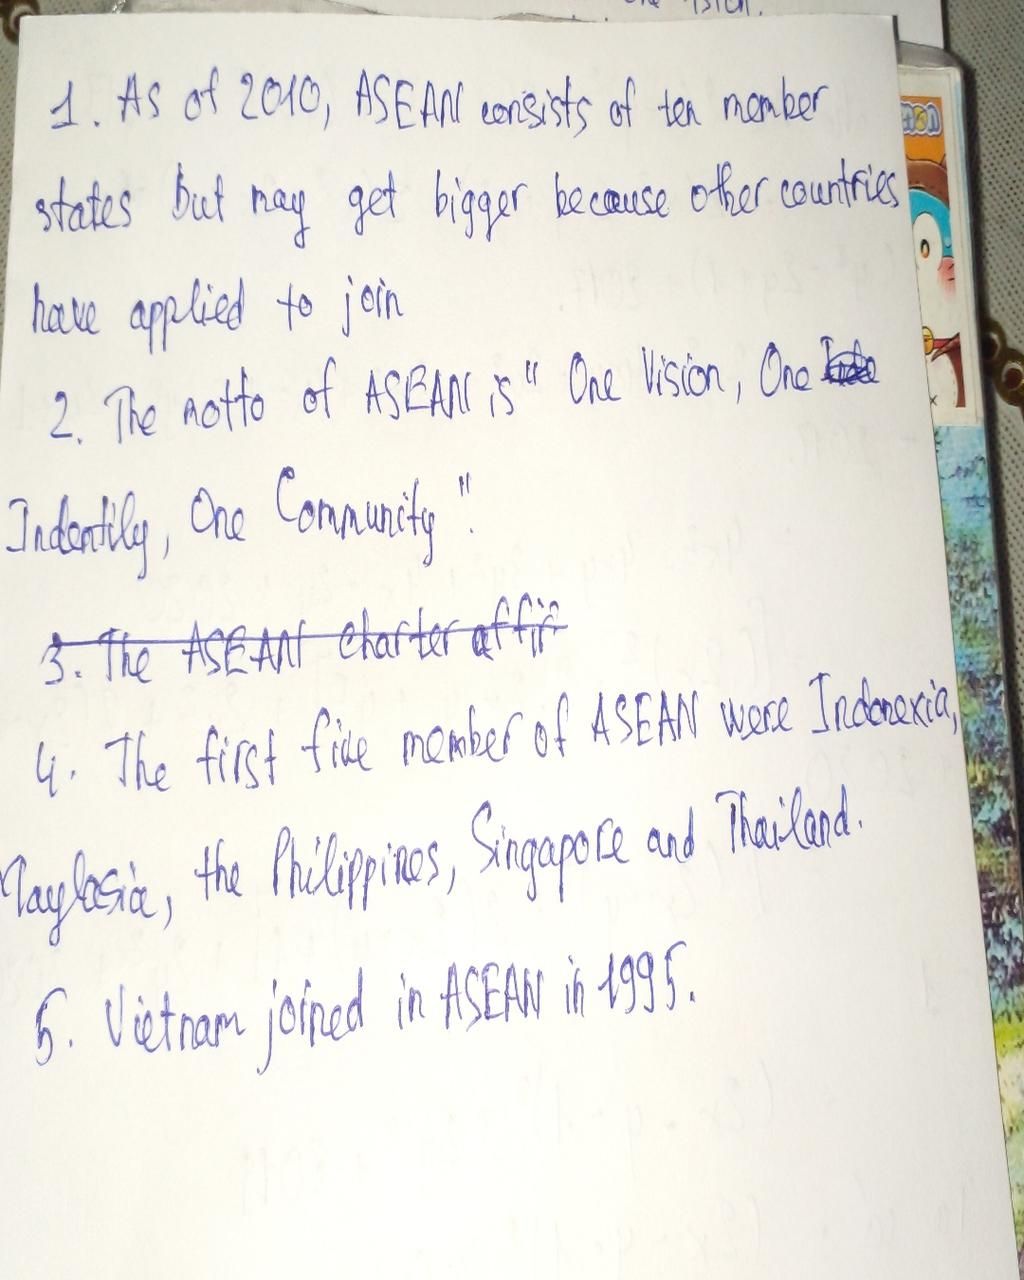 1. As of 2010, ASEAN consists of ten member
states but may get bigger because other countries
have applied to join
2. The motto of ASEAN is " One Vision, One
Indentily, One Community ".
3. The ASEAN charter affir
4. The first five member of ASEAN were Indonexia,
Maylasia, the Philippines, Singapore and Thailand.
5. Vietnam joined in ASEAN in 1995.